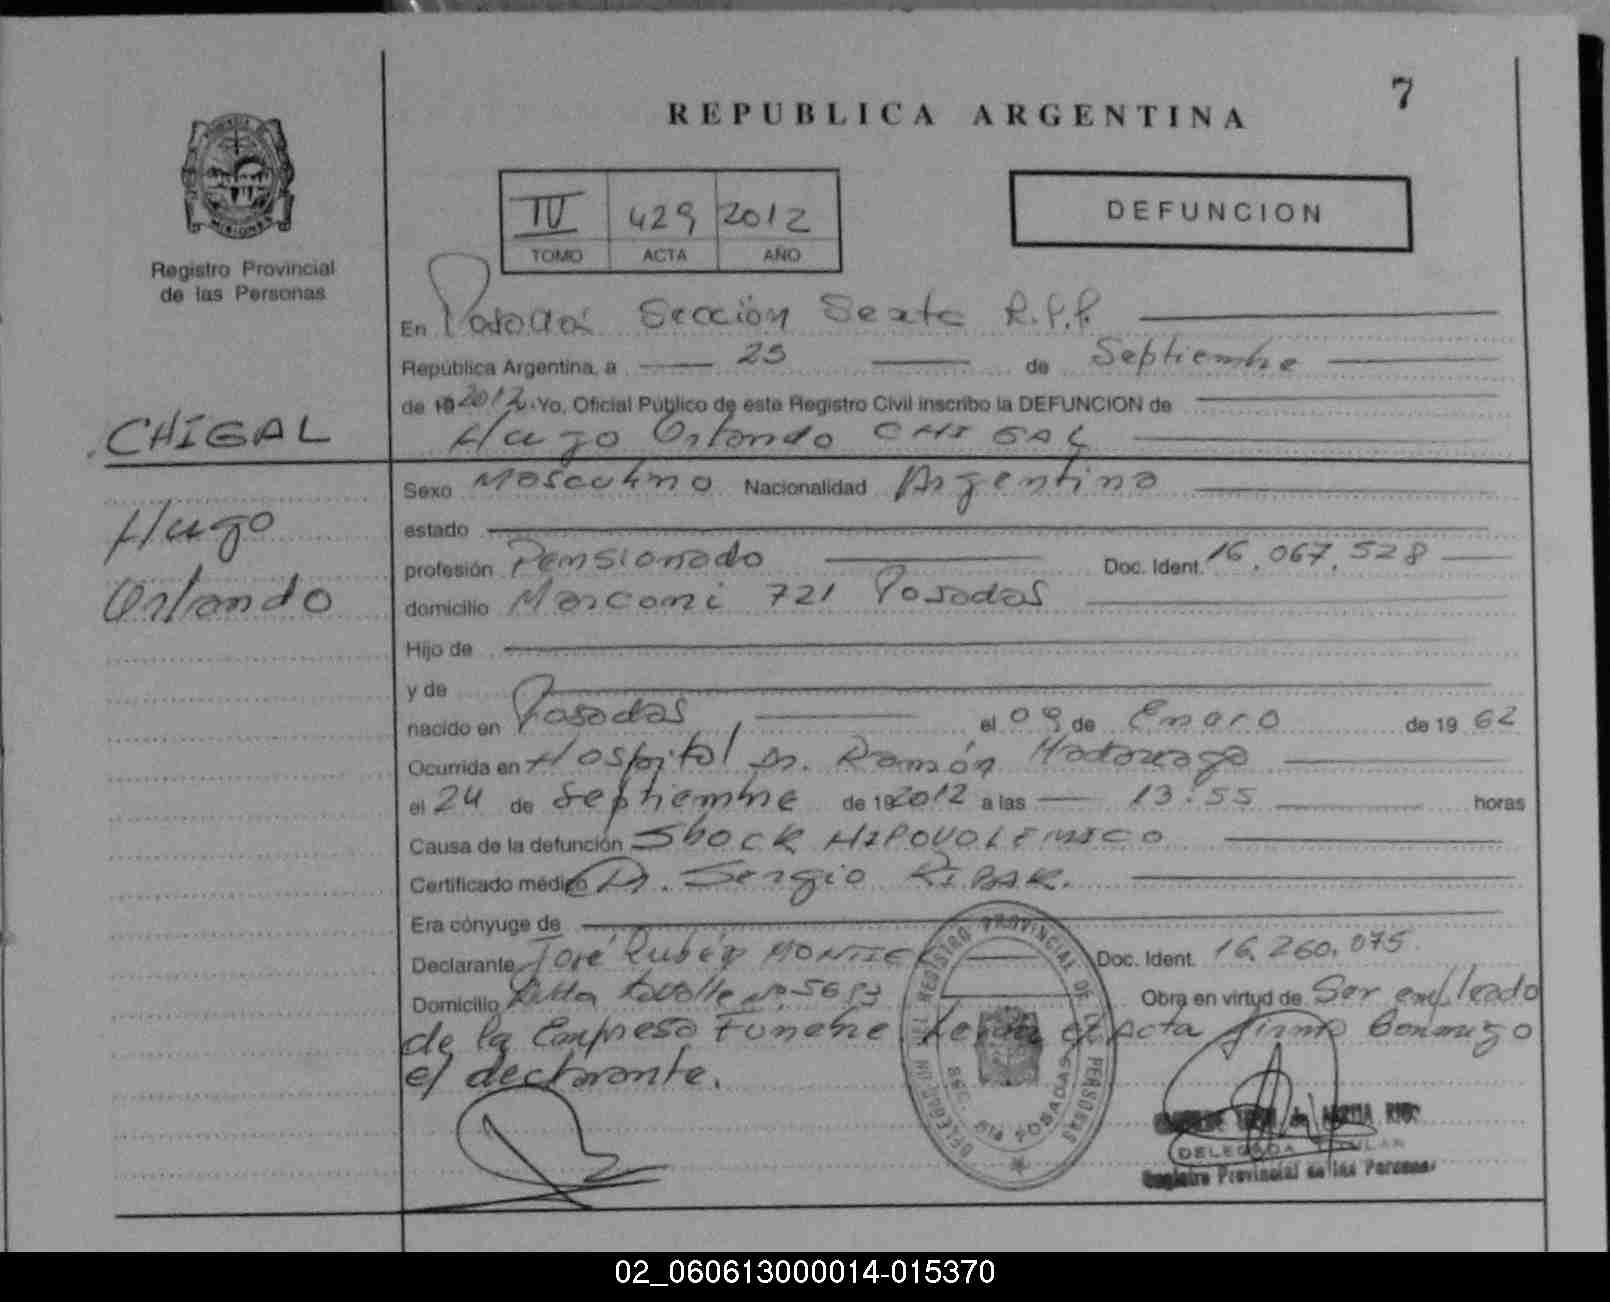 7
REPUBLICA ARGENTINA
IV 429 2012
TOMO ACTA AÑO
DEFUNCION
MISIONES
Registro Provincial
de las Personas
En Posadas Sección Sexta R.P.P.
República Argentina, a 25 de Septiembre
de 19 2012. Yo, Oficial Público de este Registro Civil inscribo la DEFUNCION de
Hugo Orlando CHIGAL
CHIGAL
Hugo
Orlando
Sexo Masculino Nacionalidad Argentina
estado
profesión Pensionado Doc. Ident. 16.067.528
domicilio Marconi 721 Posadas
Hijo de
y de
nacido en Posadas el 09 de Enero de 19 62
Ocurrida en Hospital Dr. Ramón Madariaga
el 24 de Septiembre de 19 2012 a las 13:55 horas
Causa de la defunción Shock HIPOVOLEMICO
Certificado médico Dr. Sergio RIBAR.
Era cónyuge de
Declarante José Rubén MONTIEL Doc. Ident. 16.260.075
Domicilio Nº Obra en virtud de Ser empleado
de la Empresa Fúnebre. Leída el Acta firma Conmigo
el declarante.
DELEGACION DEL REGISTRO PROVINCIAL DE LAS PERSONAS
SEC. 6ta POSADAS
DELEGADA TITULAR
Registro Provincial de las Personas
02_060613000014-015370